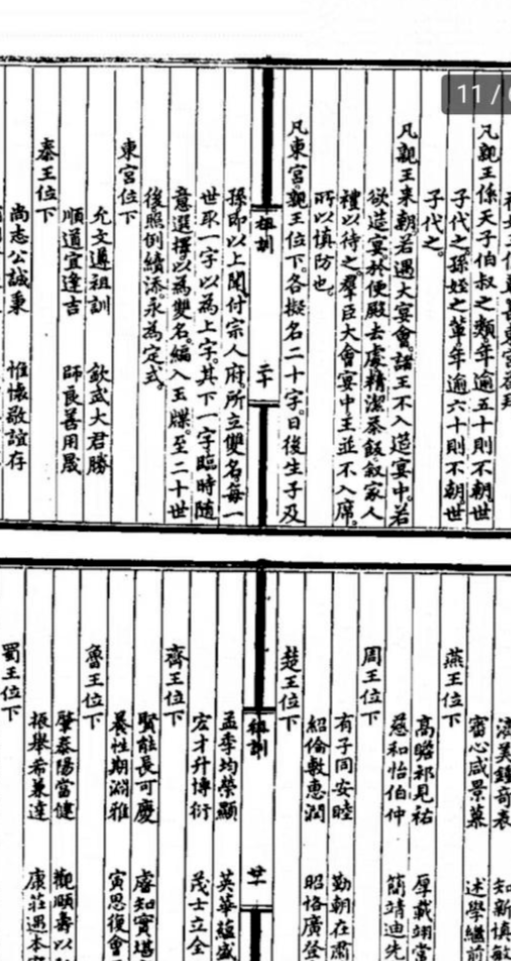 11 /
凡親王係天子伯叔之類。年逾五十則不朝。世
子代之。孫姪之輩。年逾六十則不朝。世
子代之。
凡親王来朝。若遇大宴會。諸王不入筵宴中。若
欲筵宴。於便殿去處。精潔茶飯。叙家人
禮以待之。羣臣大會宴中。王並不入席。
所以慎防也。
凡東宮親王位下。各擬名二十字。日後生子及
祖訓 二十
孫。即以上聞。付宗人府。所立雙名。每一
世取一字以為上字。其下一字臨時隨
意選擇。以為雙名。編入玉牒。至二十世
後。照例續添。永為定式。
東宮位下
允文遵祖訓 欽武大君勝
順道宜逢吉 師良善用晟
秦王位下
尚志公誠秉 惟懷敬誼存
知新慎敏
審心咸景慕 述學繼前
燕王位下
高瞻祁見祐 厚載翊常
慈和怡伯仲 簡靖迪先
周王位下
有子同安睦 勤朝在肅
紹倫敷惠潤 昭恪廣登
楚王位下
祖訓 廿
孟季均榮顯 英華蘊盛
宏才升博衍 茂士立全
齊王位下
賢能長可慶 睿知實堪
養性期淵雅 寅思復會
魯王位下
肇泰陽當健 觀頤壽以
振舉希兼達 康莊遇本
蜀王位下